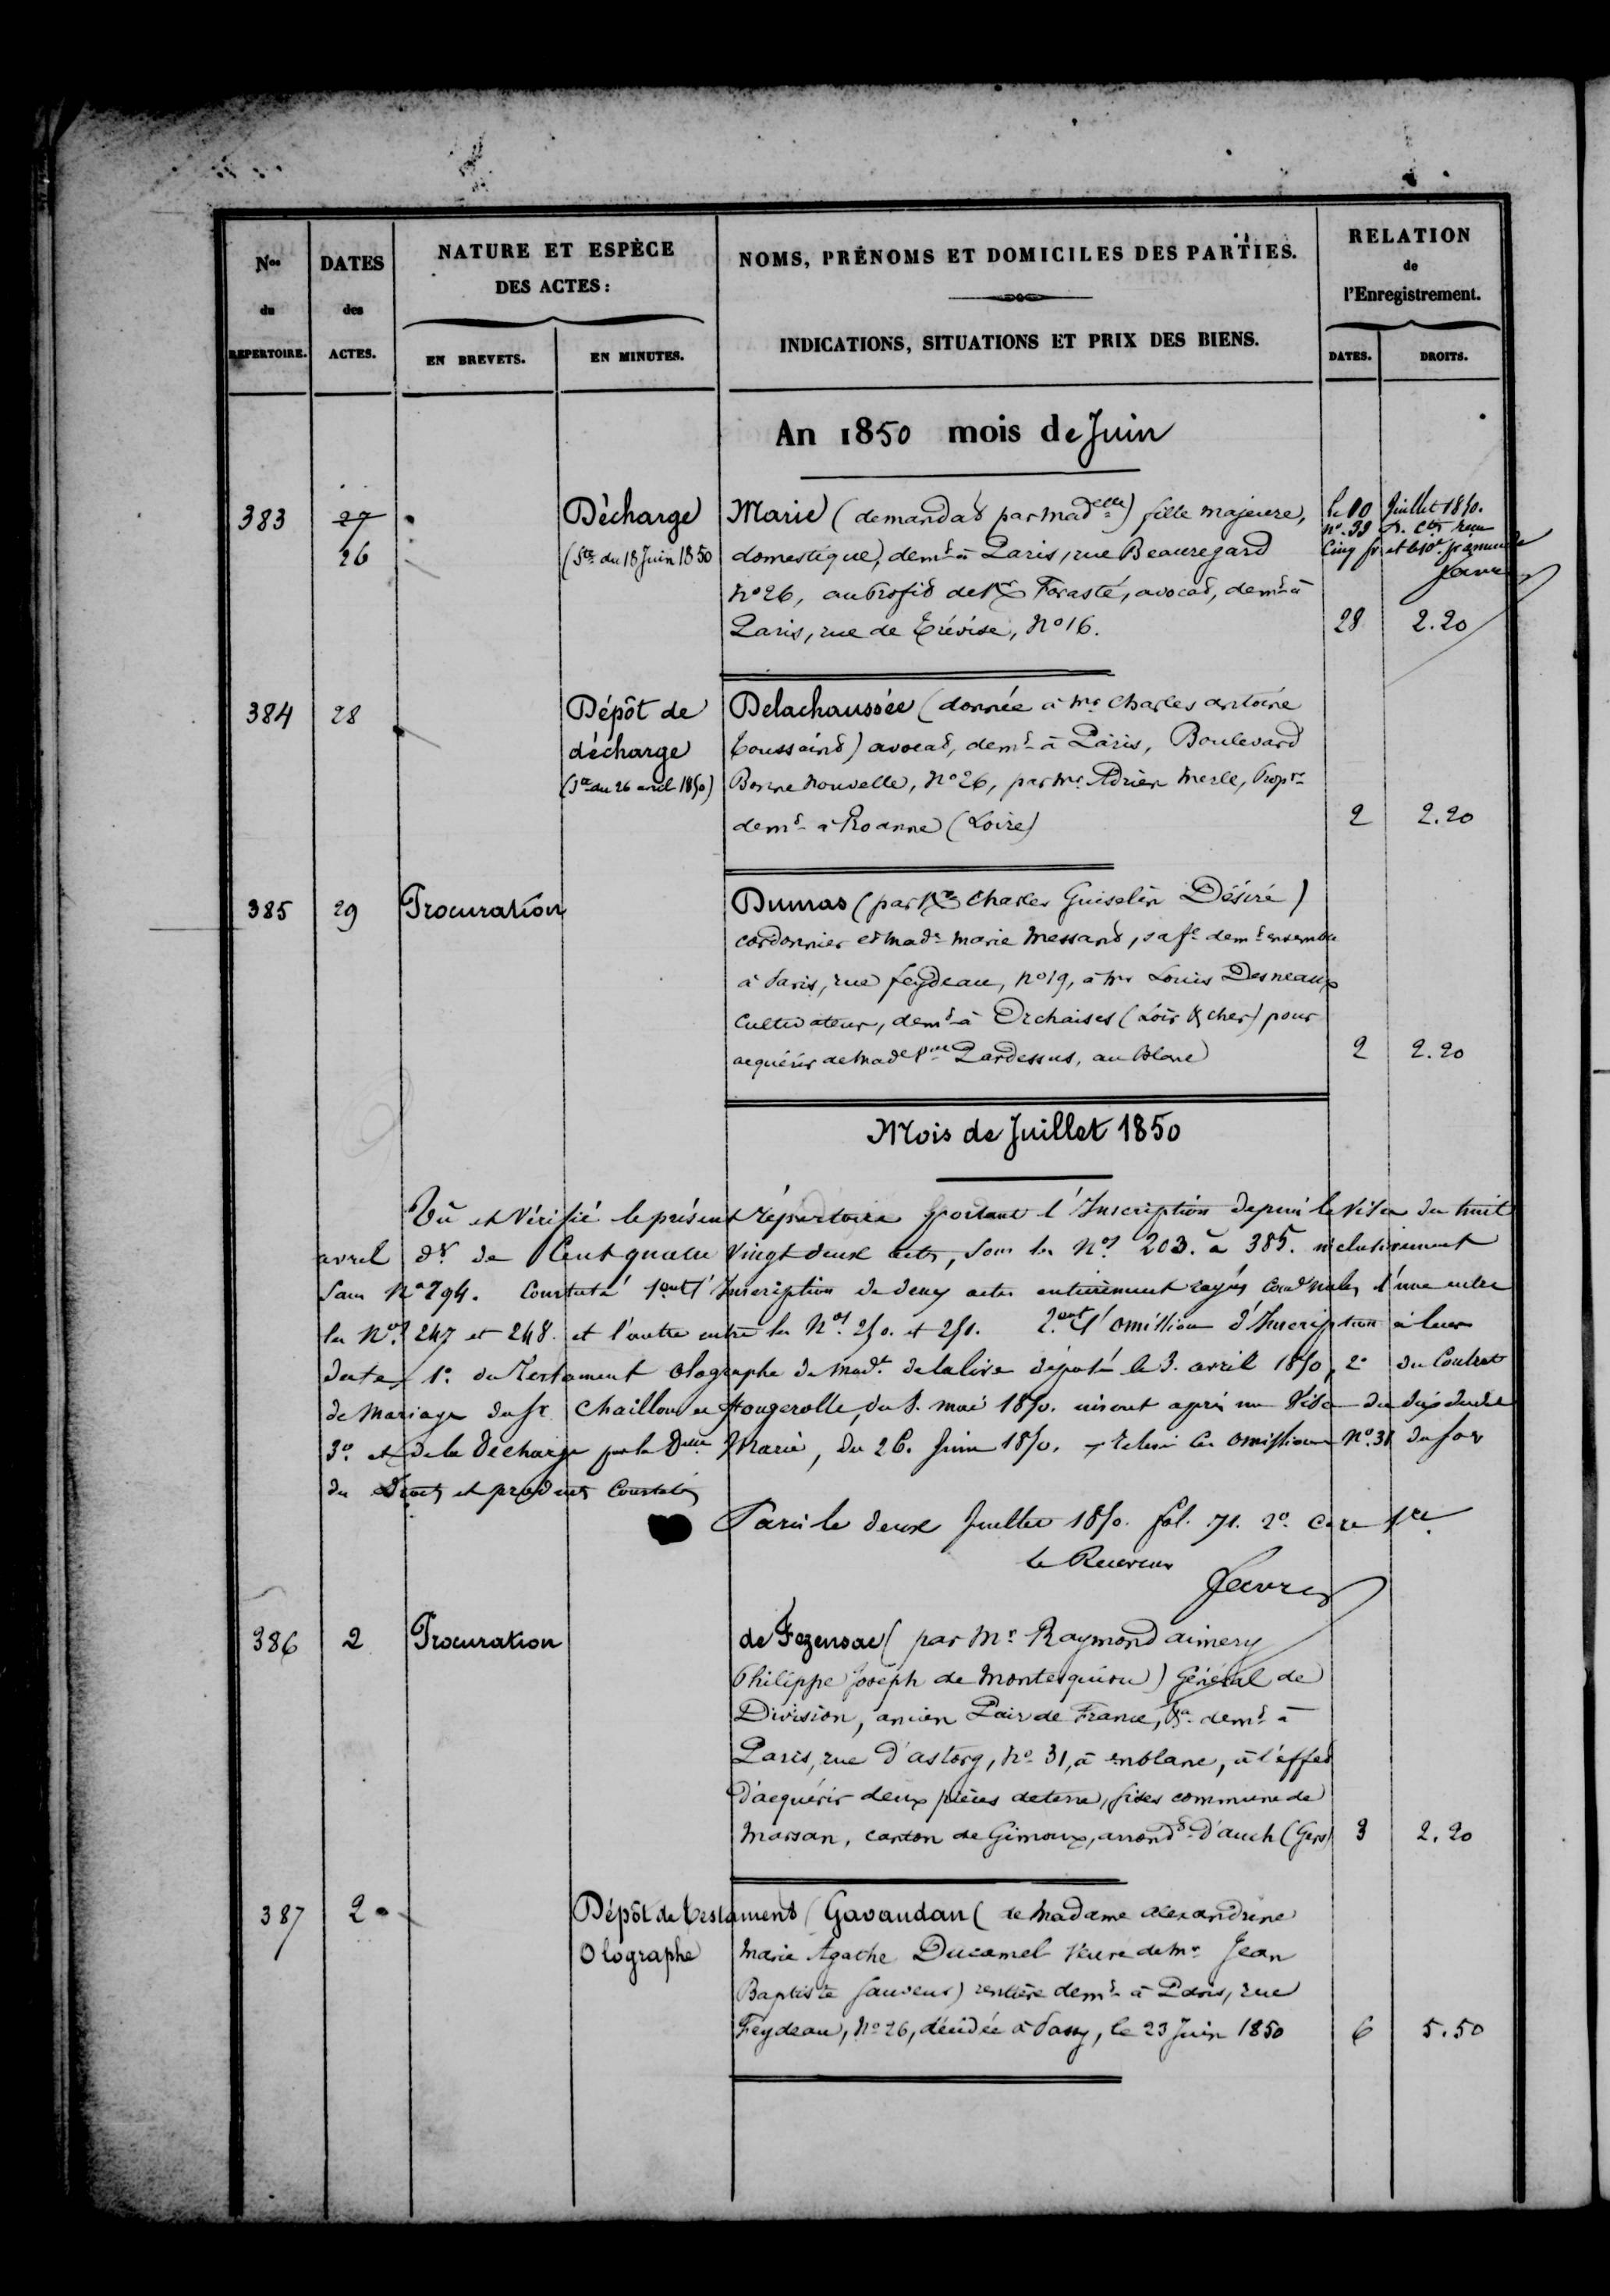 Nos
du
REPERTOIRE.
DATES
des
ACTES.
NATURE ET ESPÈCE
DES ACTES:
EN BREVETS.
EN MINUTES.
NOMS, PRÉNOMS ET DOMICILES DES PARTIES.
INDICATIONS, SITUATIONS ET PRIX DES BIENS.
RELATION
de
l'Enregistrement.
DATES.
DROITS.
An 1850 mois de Juin
383
27
26
Décharge
(Ste du 18 Juin 1850
Marie (demandat par madelle) fille majeure,
domestique, demt à Paris, rue Beauregard
No 26, au Profit de Mr Forasté, avocat, demt à
Paris, rue de Trévise, No 16.
le 10 Juillet 1850.
no. 39 reçu
Cinq fr et
Favre
28 2.20
384 28
Dépôt de
décharge
(Ste du 26 avril 1850)
Delachaussée (donnée à Mr Charles antoine
toussaint) avocat, demt à Paris, Boulevard
Bonne Nouvelle, No 26, par Mr Adrien Merle, Propre
demt à Roanne (Loire)
2 2.20
385 29 Procuration
Dumas (par Mr Charles Guiselin Désiré)
cordonnier et made marie Messant, sa fe demt ensemble
à Paris, rue feydeau, No 19, à Mr Louis Desneaux
Cultivateur, demt à Orchaises (Loir & cher) pour
acquérir de made Pardessus, au blanc
2 2.20
Mois de Juillet 1850
Vu et Vérifié le présent répertoire portant l'Inscription depuis le Visa du huit
avril dr de Cent quatre Vingt deux actes, sous les Nos 203. à 385. inclusivement
sans No 294. Constaté 1ent l'Inscription de deux actes entièrement rayés l'une entre
les Nos 247 et 248. et l'autre entre les Nos 250. et 251. 2ent l'omission d'Inscription à leur
date, 1o du Testament olographe de Made delalive déposé le 3. avril 1850, 2o du Contrat
de Mariage du Sr Chaillou et fougerolle, du 8. mai 1850. après un Visa du
3o et de la Décharge par la Delle Marie, du 26. Juin 1850. omissions No. 31
du Droits et produits Constatés
Paris le deux Juillet 1850. fol. 71. 2o Case 1re
le Receveur
Favre
386 2 Procuration
de Fezensac (par Mr Raymond aimery
Philippe Joseph de Montesquiou) Général de
Division, ancien Pair de France, demt à
Paris, rue d'astorg, No 31, à en blanc, à l'effet
d'acquérir deux pièces de terre, sises commune de
Marsan, canton de Gimoux, arrondt d'auch (Gers)
3 2.20
387 2
Dépôt de testament
Olographe
Gavaudan (de Madame Alexandrine
Marie Agathe Ducamel Veuve de Mr Jean
Baptiste Sauveur) rentière demt à Paris, rue
Feydeau, No 26, décédée à Passy, le 23 Juin 1850
6 5.50